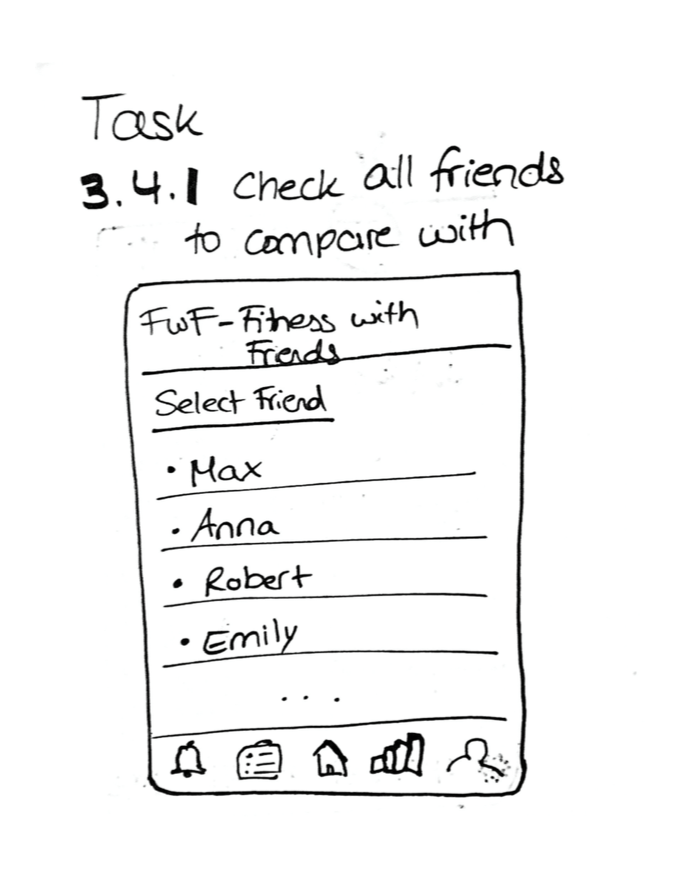 Task
3.4.1 Check all friends
to compare with
FwF-Fitness with
Friends
Select Friend
• Max
• Anna
• Robert
• Emily
...